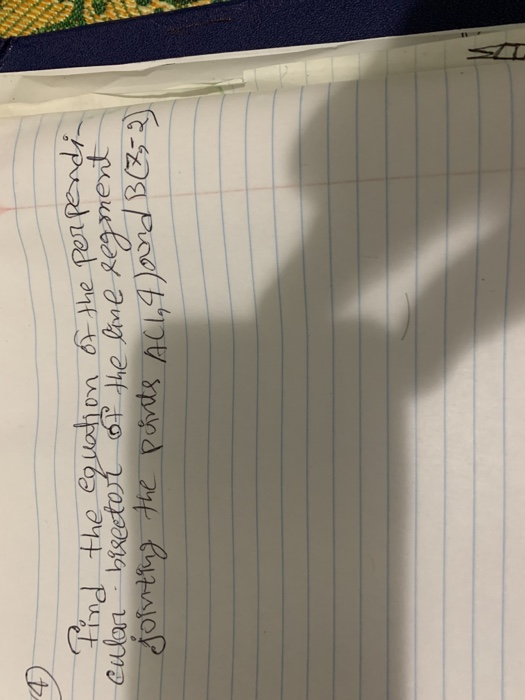 4)
Find the equation of the perpendi-
cular bisector of the line segment
jointing the points A(1,4) and B(7,-2)